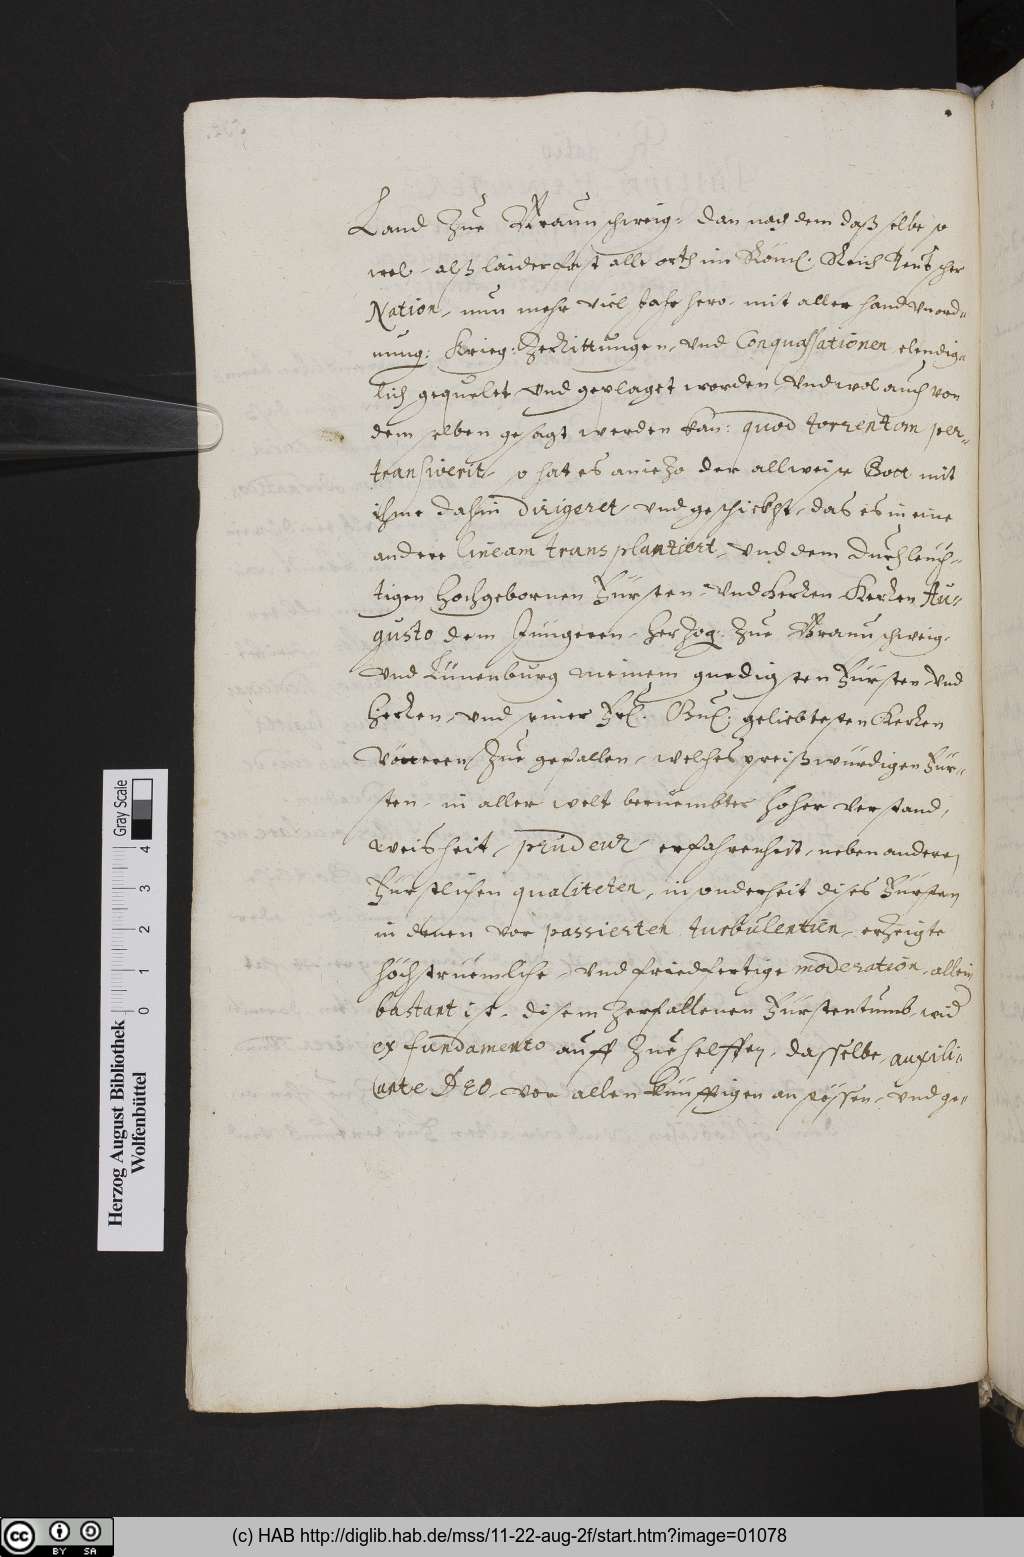 Land zue Braunschweig: dan nach dem daß selbe so
wol, alß laider fast alle orth im Röm: Reich Teutscher
Nation, nun mehr viel Jahr hero, mit aller hand vnord-
nung: Krieg: Zerrittungen, vnd Conquassationen elendig-
lich gequelet vnd geplaget worden, vnd wol auch von
dem selben gesagt werden kan: quod torrentem per-
transiverit, so hat es aniezo der allweise Gott mit
ihme dahin dirigeret, vnd geschickht, das es in eine
andere lineam transplantiert, vnd dem Durchleuch-
tigen Hochgebornen Fürsten, vnd Herren Herren Au-
gusto dem Jüngeren, Herzog: zue Braunschweig,
vnd Lünenburg meinem gnedigsten Fürsten vnd
Herren, vnd seiner Frl: Gnl: geliebtesten Herren
Vötteren zue gefallen, welches preißwürdigen Für-
sten, in aller welt beruembter hoher verstand,
weisheit, prudenz, erfahrenheit, neben anderen
Fürstlichen qualiteten, in sonderheit dises Fürsten
in denen vor passierten turbulentien, erzeigte
höchstruemliche, vnd friedfertige moderation, allein
bastant ist, disem zerfallenen Fürstentumb, wid
ex fundamento auff zue helffen, dasselbe, auxili-
ante DEO, vor allen künfftigen anstössen, vnd ge-
Herzog August Bibliothek
Wolfenbüttel
Gray Scale
0 1 2 3 4
(c) HAB http://diglib.hab.de/mss/11-22-aug-2f/start.htm?image=01078
cc BY SA